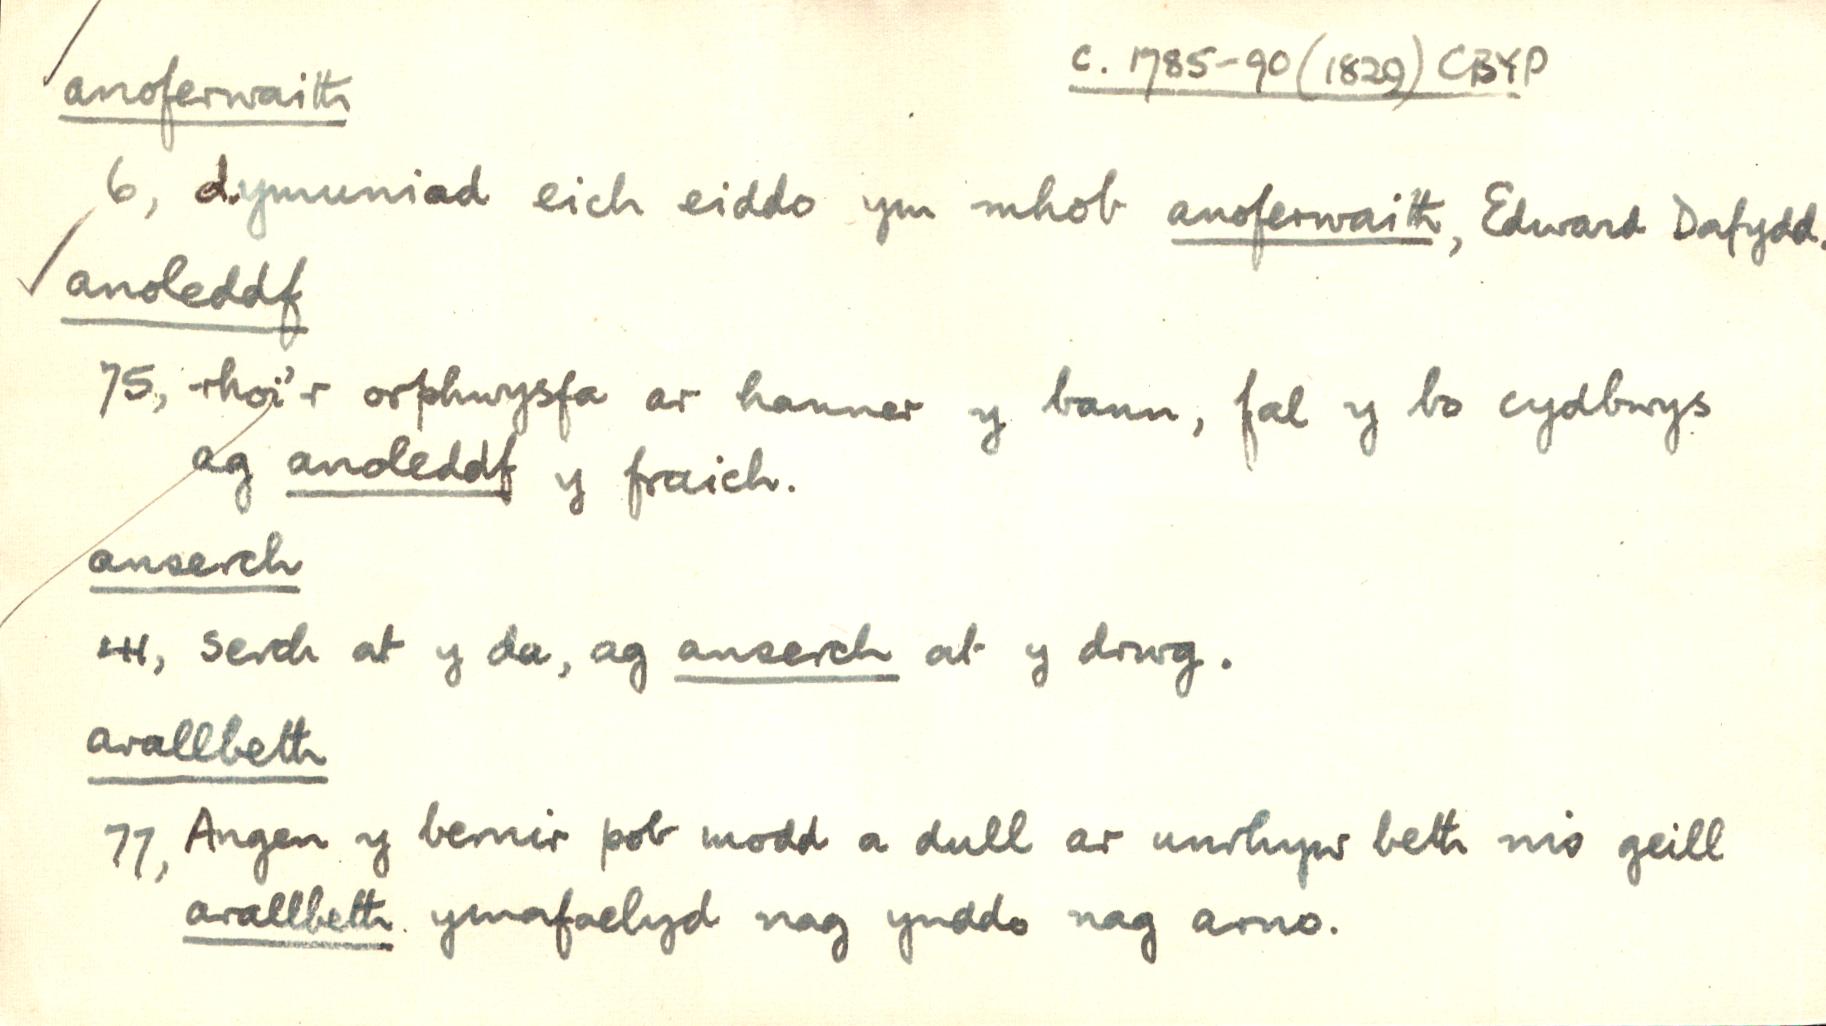 c. 1785-90 (1829) CBYP
anoferwaith
6, dymuniad eich eiddo ym mhob anoferwaith, Edward Dafydd.
anoleddf
75, rhoi'r orphwysfa ar hanner y bann, fal y bo cydbwys
ag anoleddf y fraich.
anserch
41, serch at y da, ag anserch at y drwg.
arallbeth
77, Angen y bernir pob modd a dull ar unrhyw beth nis geill
arallbeth ymafaelyd nag ynddo nag arno.